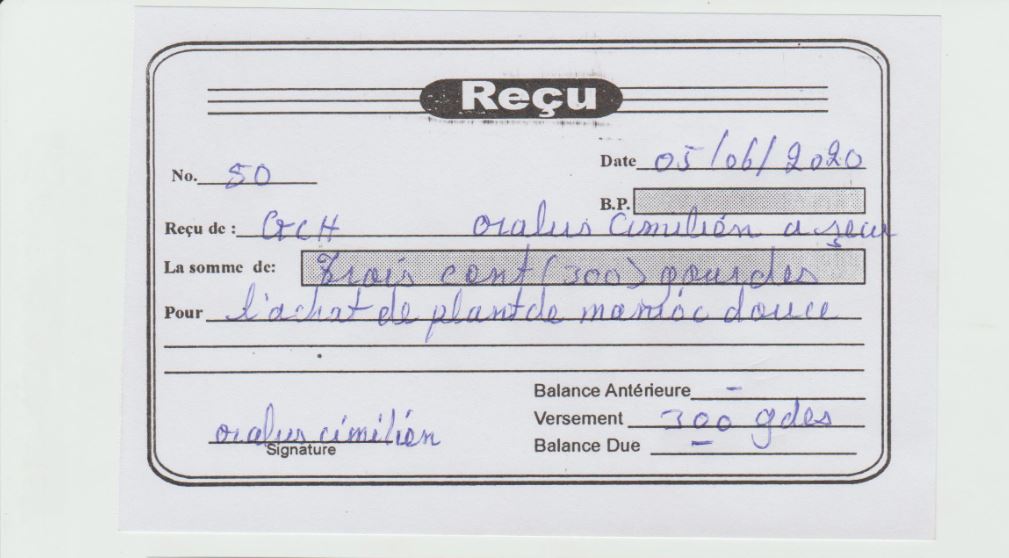 Reçu
Date 05/06/2020
No. 50
B.P.
Reçu de : GCH oralus Cimilién a reçu
La somme de: Trois cent (300) gourdes
Pour l'achat de plant de manioc douce
Balance Antérieure -
Versement 300 gdes
oralus cimilién
Signature
Balance Due -